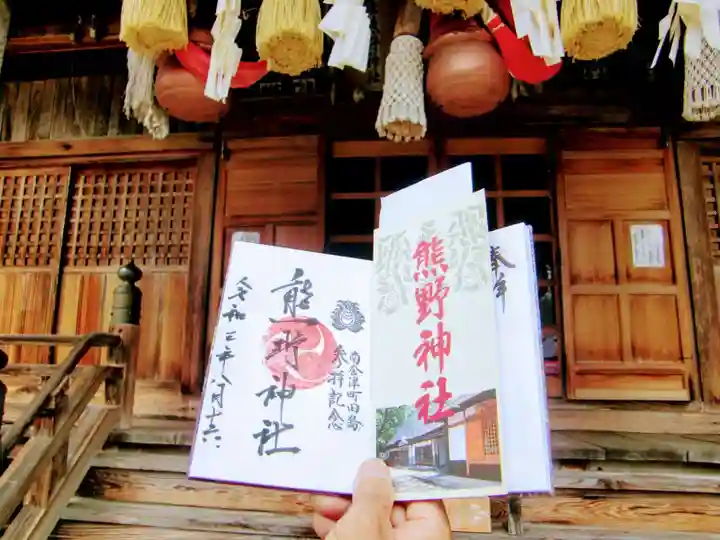 熊野神社
南会津町田島
参拝記念
熊野神社
令和三年八月十六
奉拝